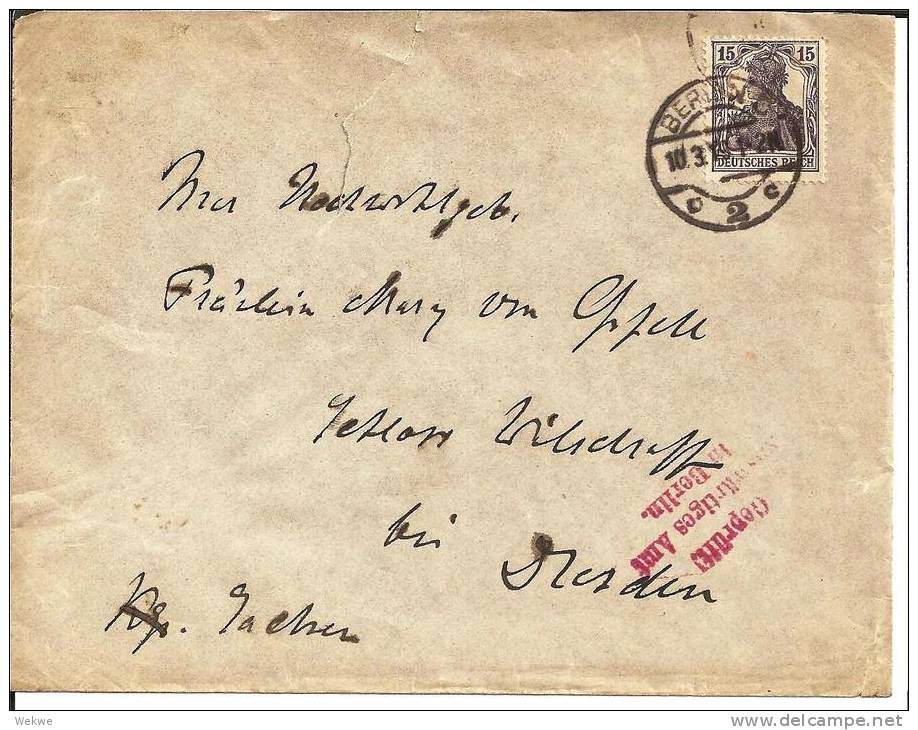 15 15
DEUTSCHES REICH
BERLIN C
10.3.
c 2 c
Hochwohlgeb.
Fräulein Mary von
Schloss Wilsdruff
bei
Dresden
Kgr. Sachsen
Geprüft
Auswärtiges Amt
in Berlin.
Wekwe
delcampe.net